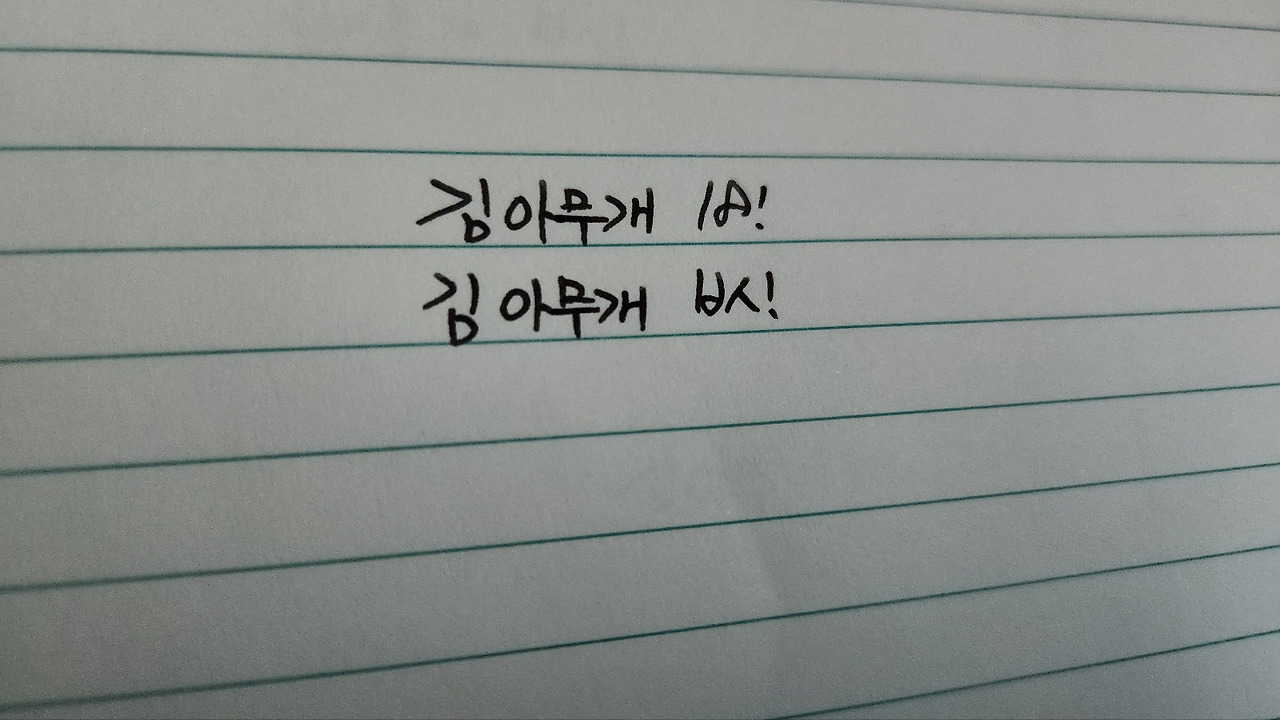 김아무개 ㅅㅂ!
김아무개 ㅂㅅ!